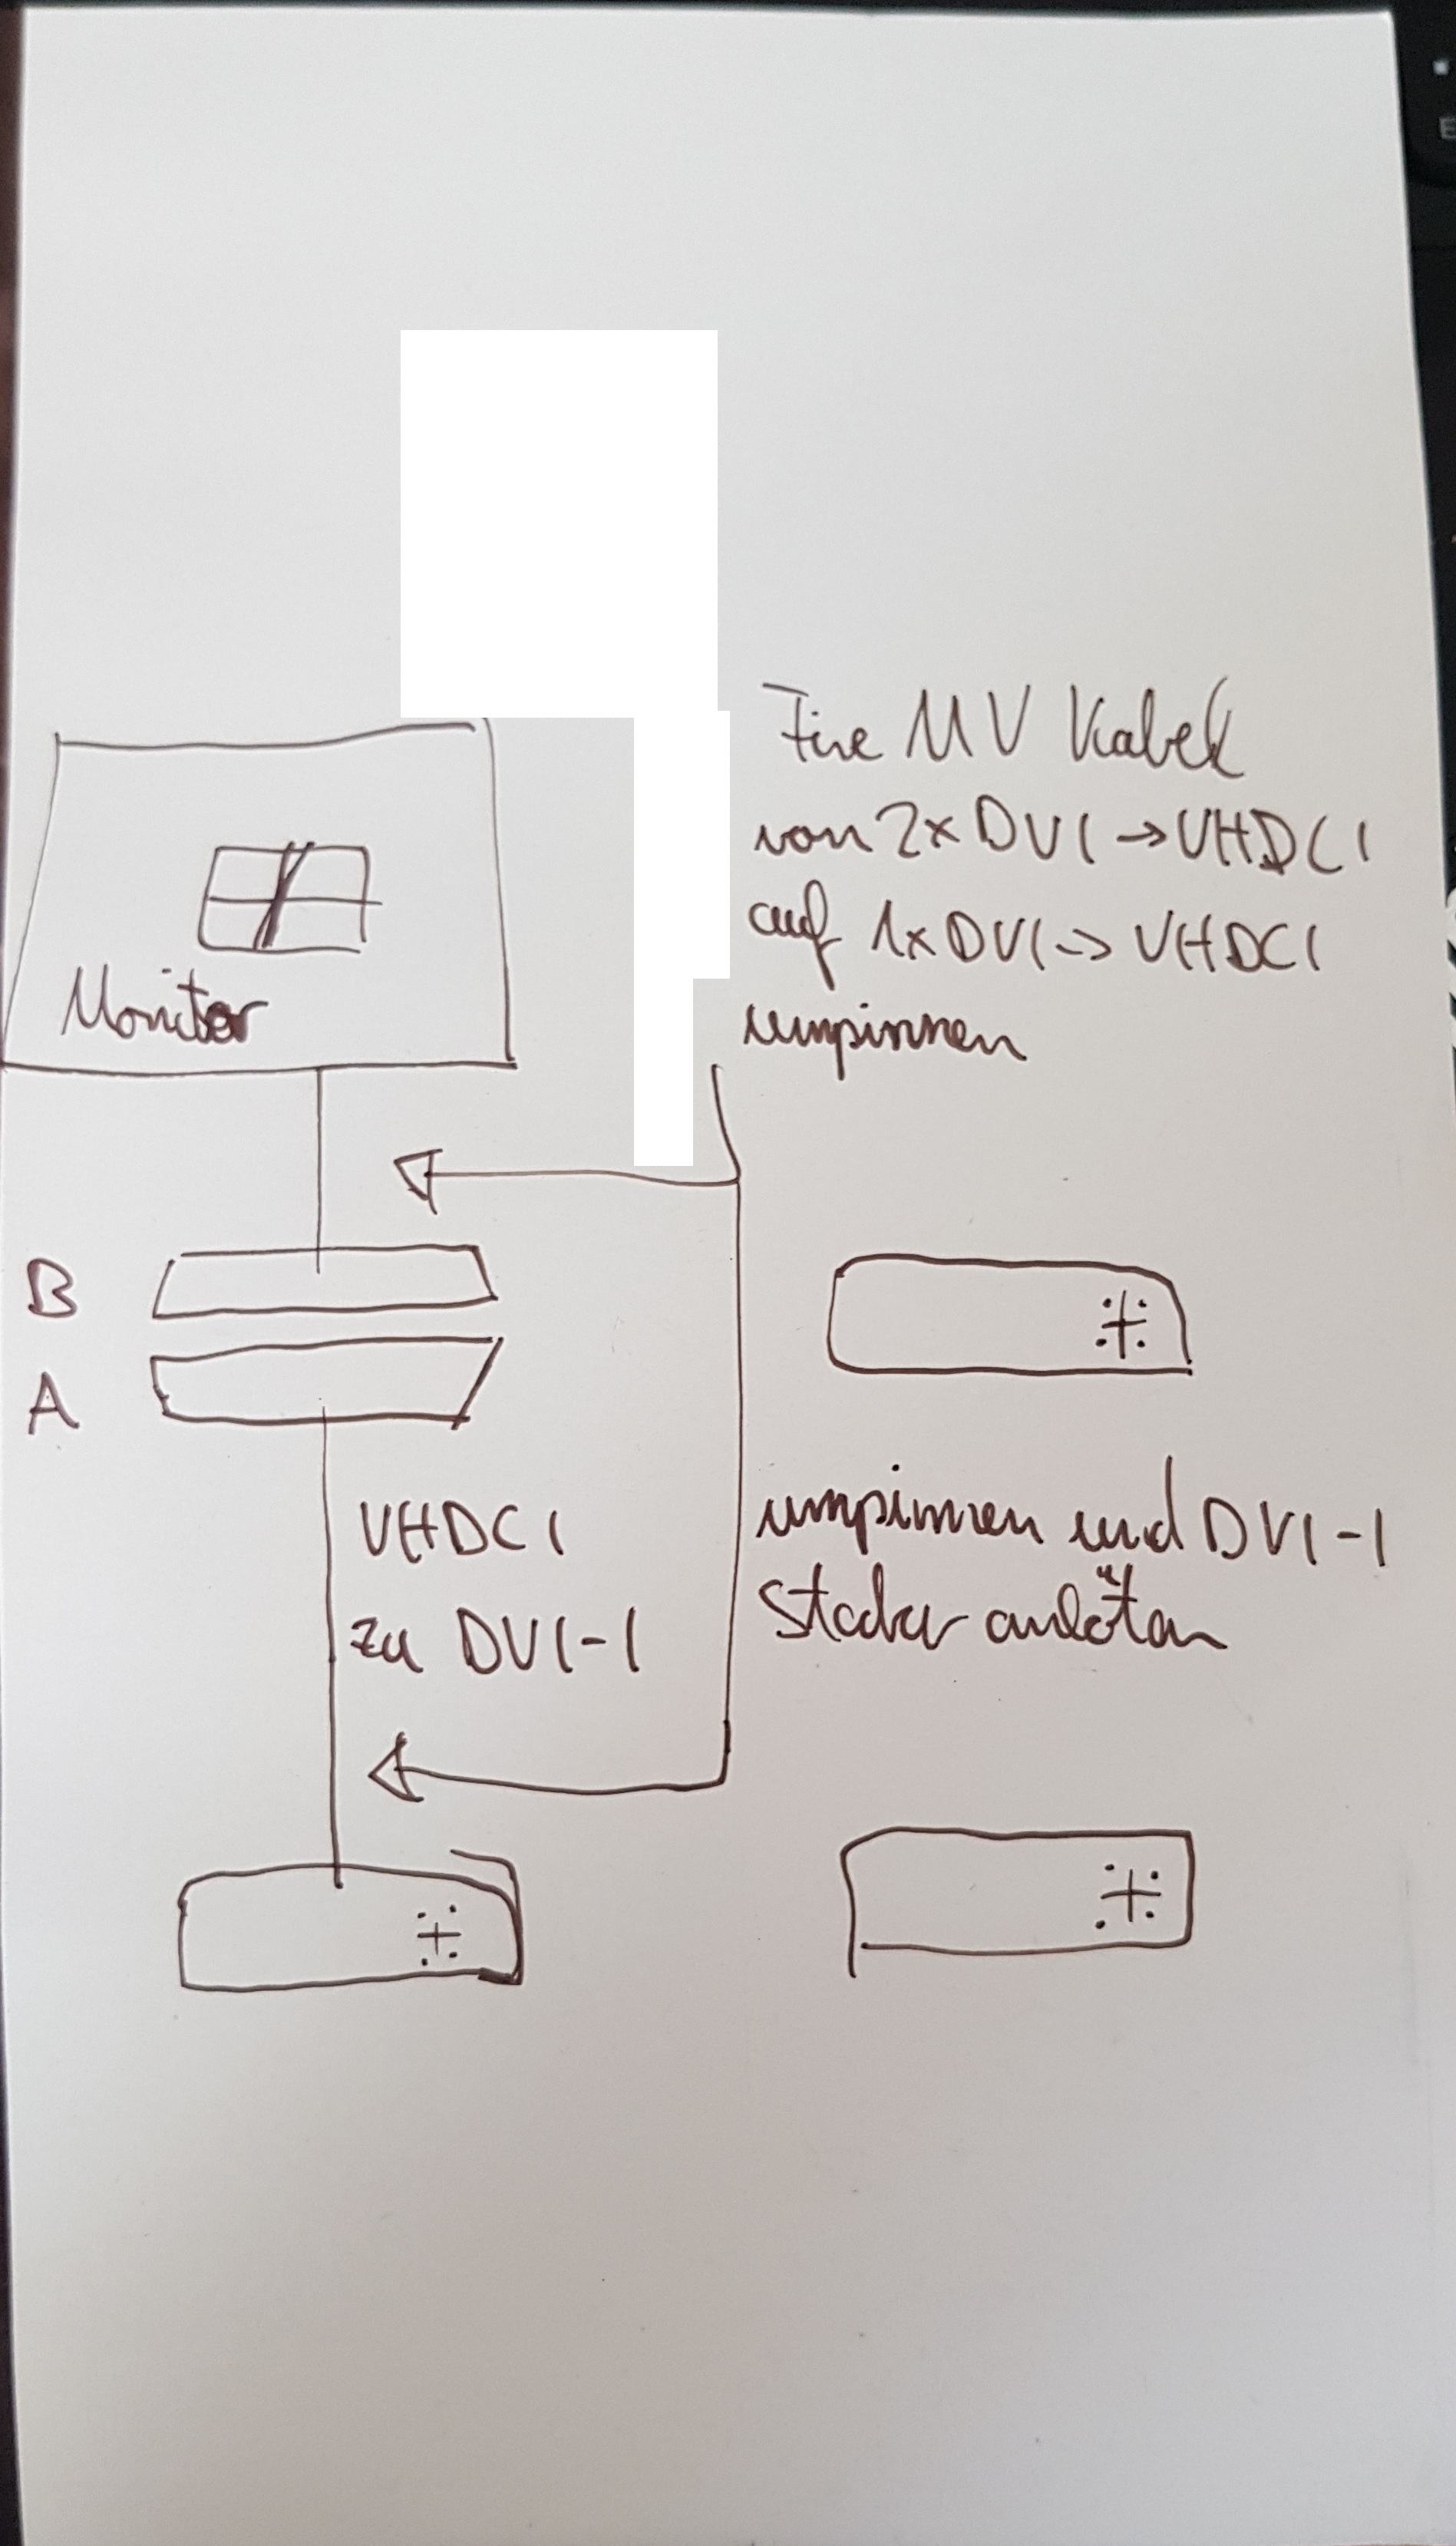 Fire MV Kabel
von 2x DVI → VHDCI
auf 1x DVI -> VHDCI
umpinnen
Monitor
B
A
VHDCI
zu DVI-I
umpinnen und DVI-I
Stecker anlöten
E